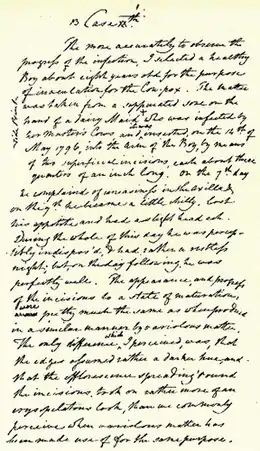 13 Case
The more accurately to observe the
progress of the infection, I selected a healthy
Boy about eight years old for the purpose
of inoculation for the Cow-pox. The matter
was taken from a suppurated sore on the
hand of a dairy Maid who was infected by
her Master's Cows and inserted, on the 14th of
May 1796, into the arm of the Boy, by means
of two superficial incisions, each about three
quarters of an inch long. On the 7th day
he complained of uneasiness in the axilla &
on the 9th he became a little chilly, lost
his appetite, and had a slight head ach.
During the whole of this day he was percep-
tibly indispos'd, & had rather a restless
night; but, on the day following, he was
perfectly well. The appearance, and progress
of the incisions to a state of maturation,
were pretty much the same as when produced
in a similar manner by variolous matter.
The only difference which I perceived, was, that
the edges assumed rather a darker hue, and
that the efflorescence spreading round
the incisions, took on rather more of an
erysipelatous look, than we commonly
perceive when variolous matter has
been made use of for the same purpose.